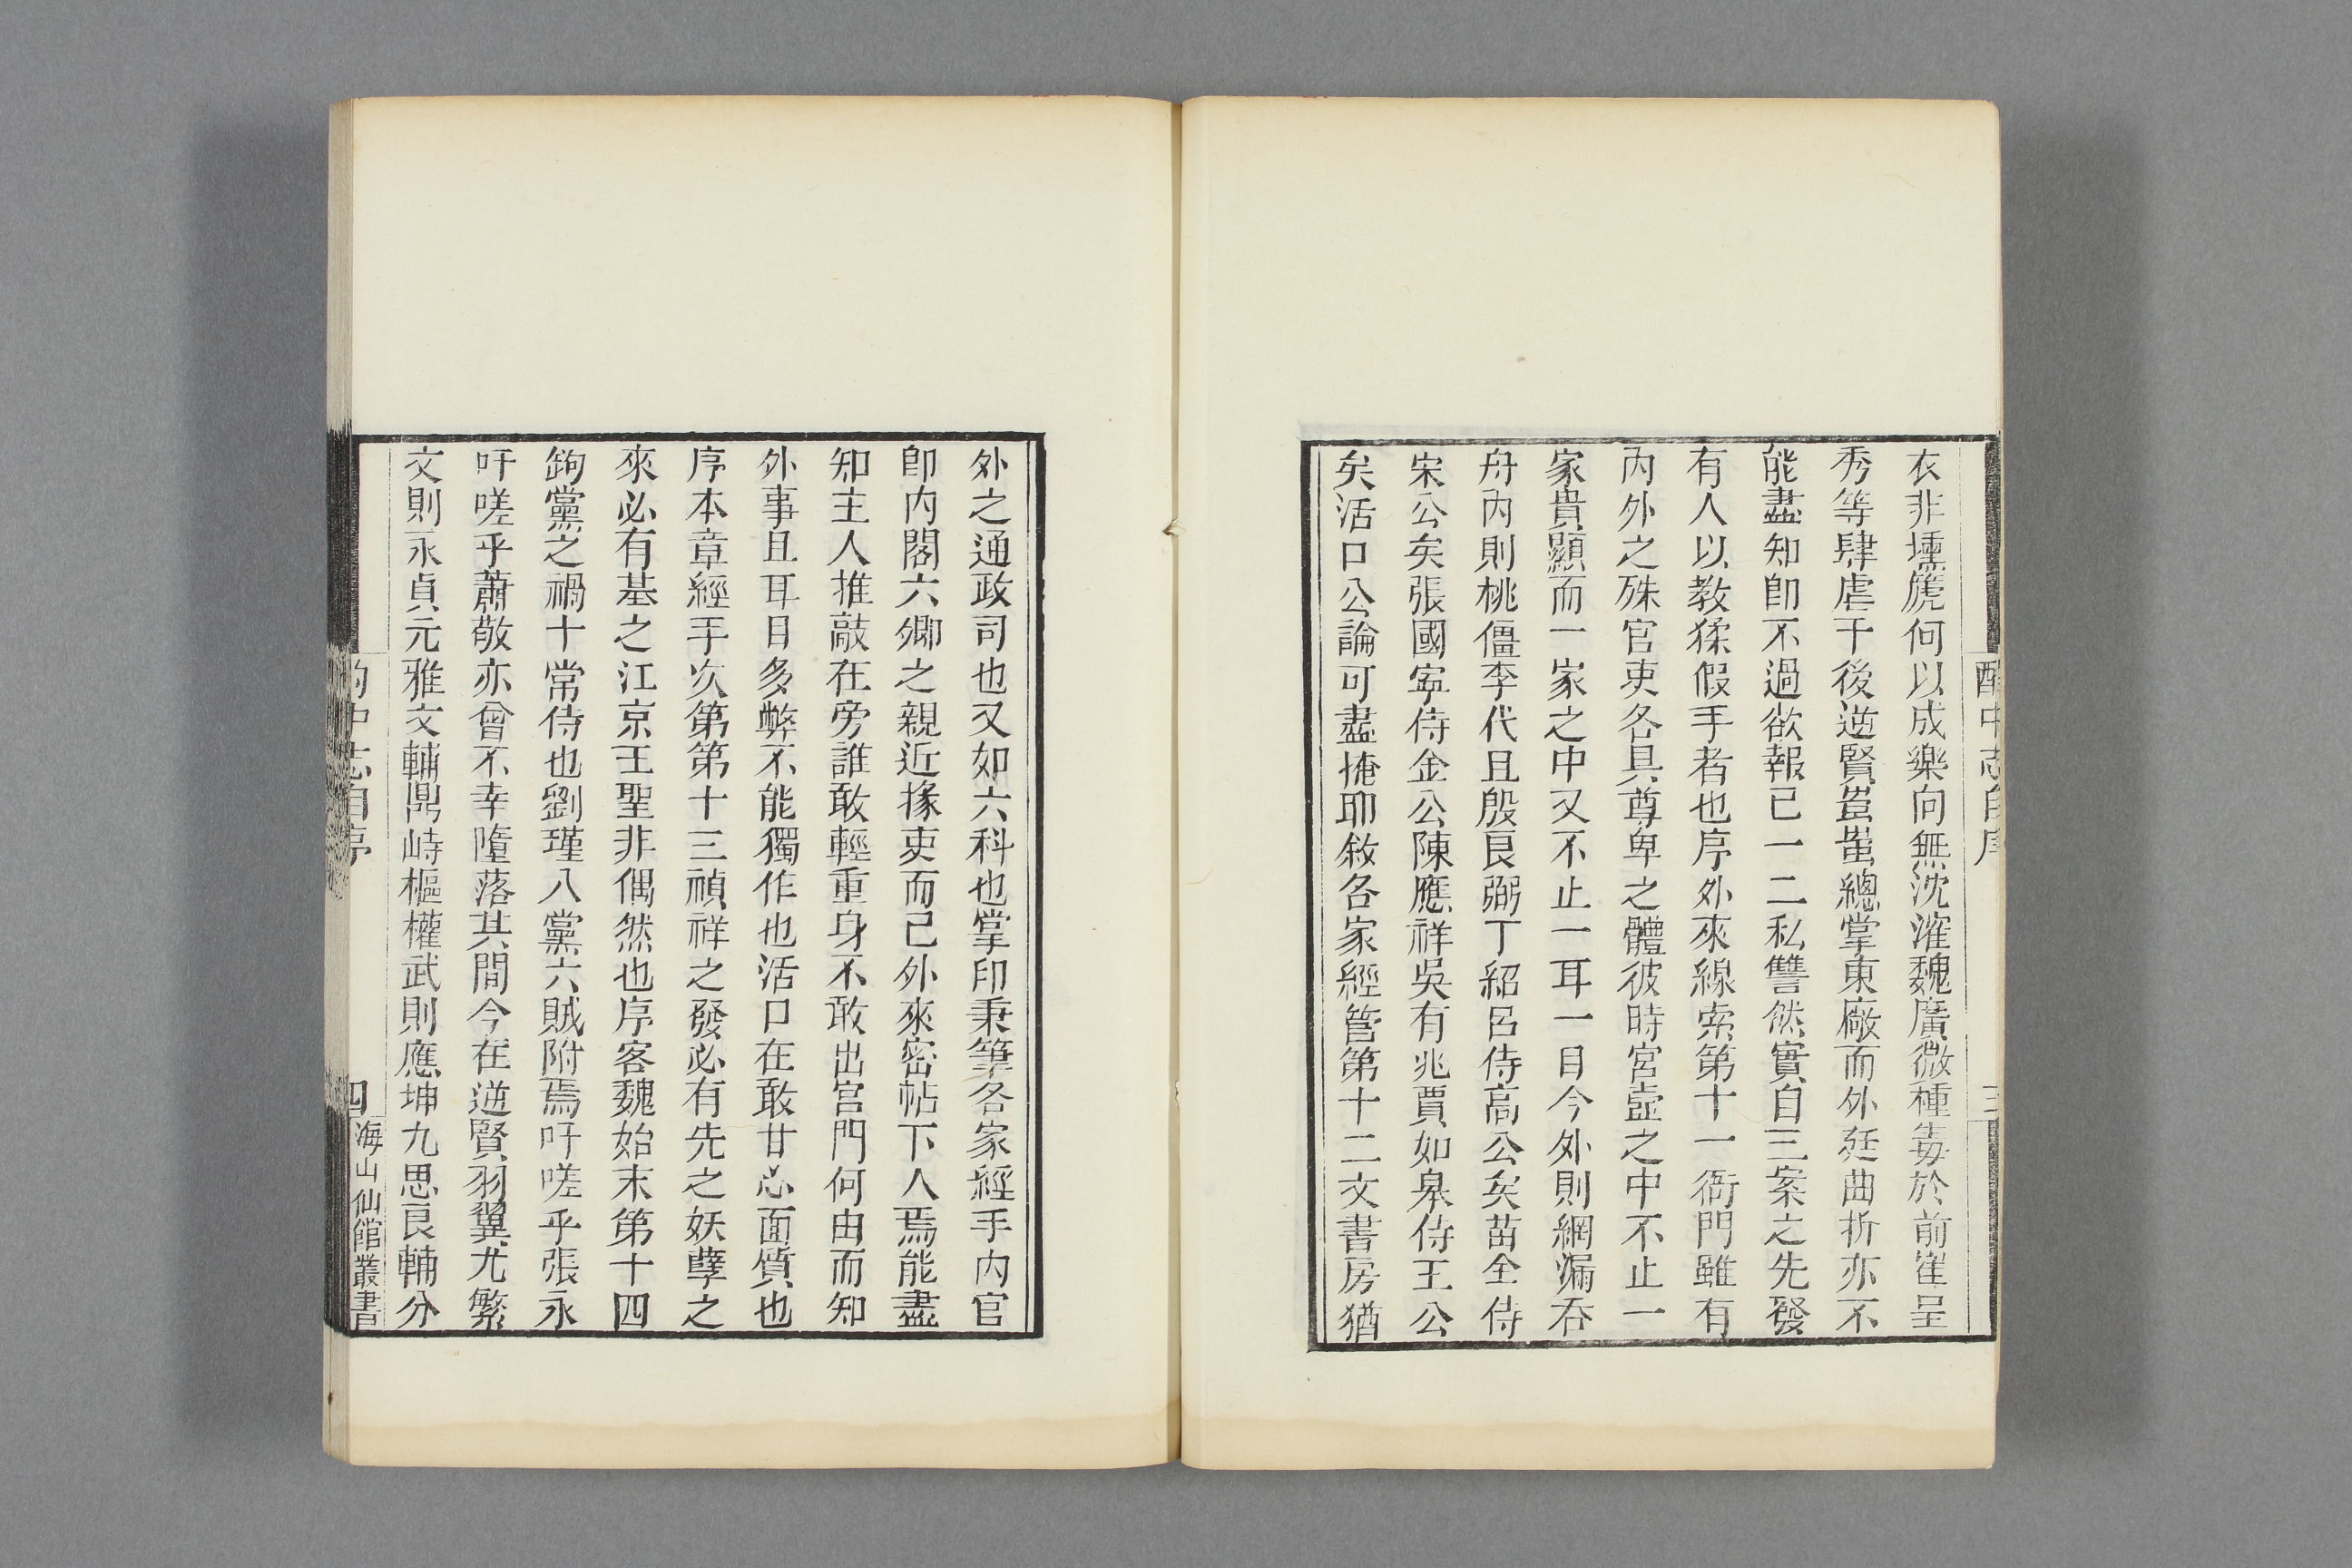 酌中志自序
三
衣非壎篪何以成樂向無沈㴶魏廣微種毒於前崔呈
秀等肆虐于後逆賢蚩蚩總掌東廠而外廷曲折亦不
能盡知卽不過欲報己一二私讐然實自三案之先發
有人以教猱假手者也序外來線索第十一衙門雖有
內外之殊官吏各具尊卑之體彼時宮壼之中不止一
家貴顯而一家之中又不止一耳一目今外則網漏吞
舟內則桃僵李代且殷良弼丁紹呂侍高公矣苗全侍
宋公矣張國寧侍金公陳應祥吳有兆賈如皋侍王公
矣活口公論可盡掩耶敘各家經管第十二文書房猶
外之通政司也又如六科也掌印秉筆各家經手內官
卽內閣六卿之親近掾吏而已外來密帖下人焉能盡
知主人推敲在旁誰敢輕重身不敢出宮門何由而知
外事且耳目多弊不能獨作也活口在敢甘心面質也
序本章經手次第第十三禎祥之發必有先之妖孽之
來必有基之江京王聖非偶然也序客魏始末第十四
鉤黨之禍十常侍也劉瑾八黨六賊附焉吁嗟乎張永
吁嗟乎蕭敬亦曾不幸墮落其間今在逆賢羽翼尤繁
文則永貞元雅文輔鼎峙樞權武則應坤九思良輔分
酌中志自序
四
海山仙館叢書